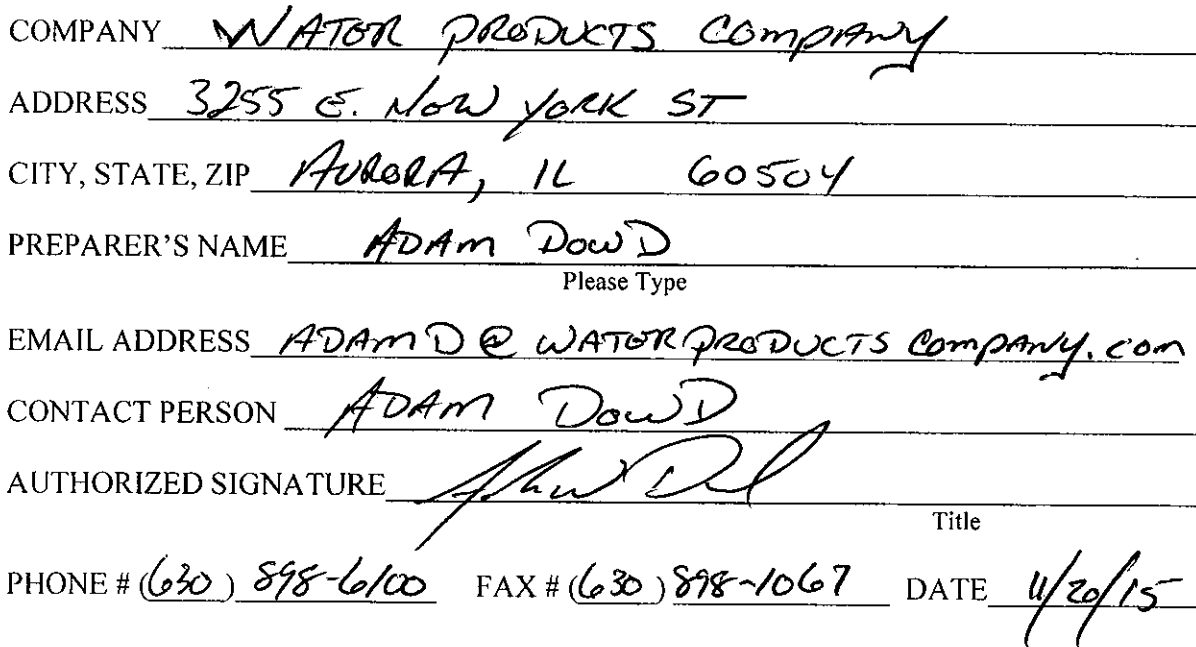 COMPANY WATER PRODUCTS COMPANY
ADDRESS 3255 E. NEW YORK ST
CITY, STATE, ZIP AURORA, IL 60504
PREPARER'S NAME ADAM DOWD
Please Type
EMAIL ADDRESS ADAMD@WATERPRODUCTSCOMPANY.COM
CONTACT PERSON ADAM DOWD
AUTHORIZED SIGNATURE
Title
PHONE # (630) 898-6100 FAX # (630) 898-1067 DATE 11/20/15